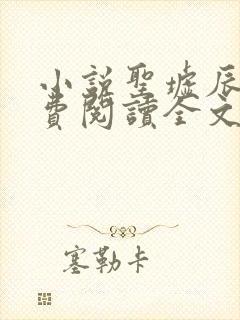 小説聖墟辰
費閱讀全文
塞勒卡